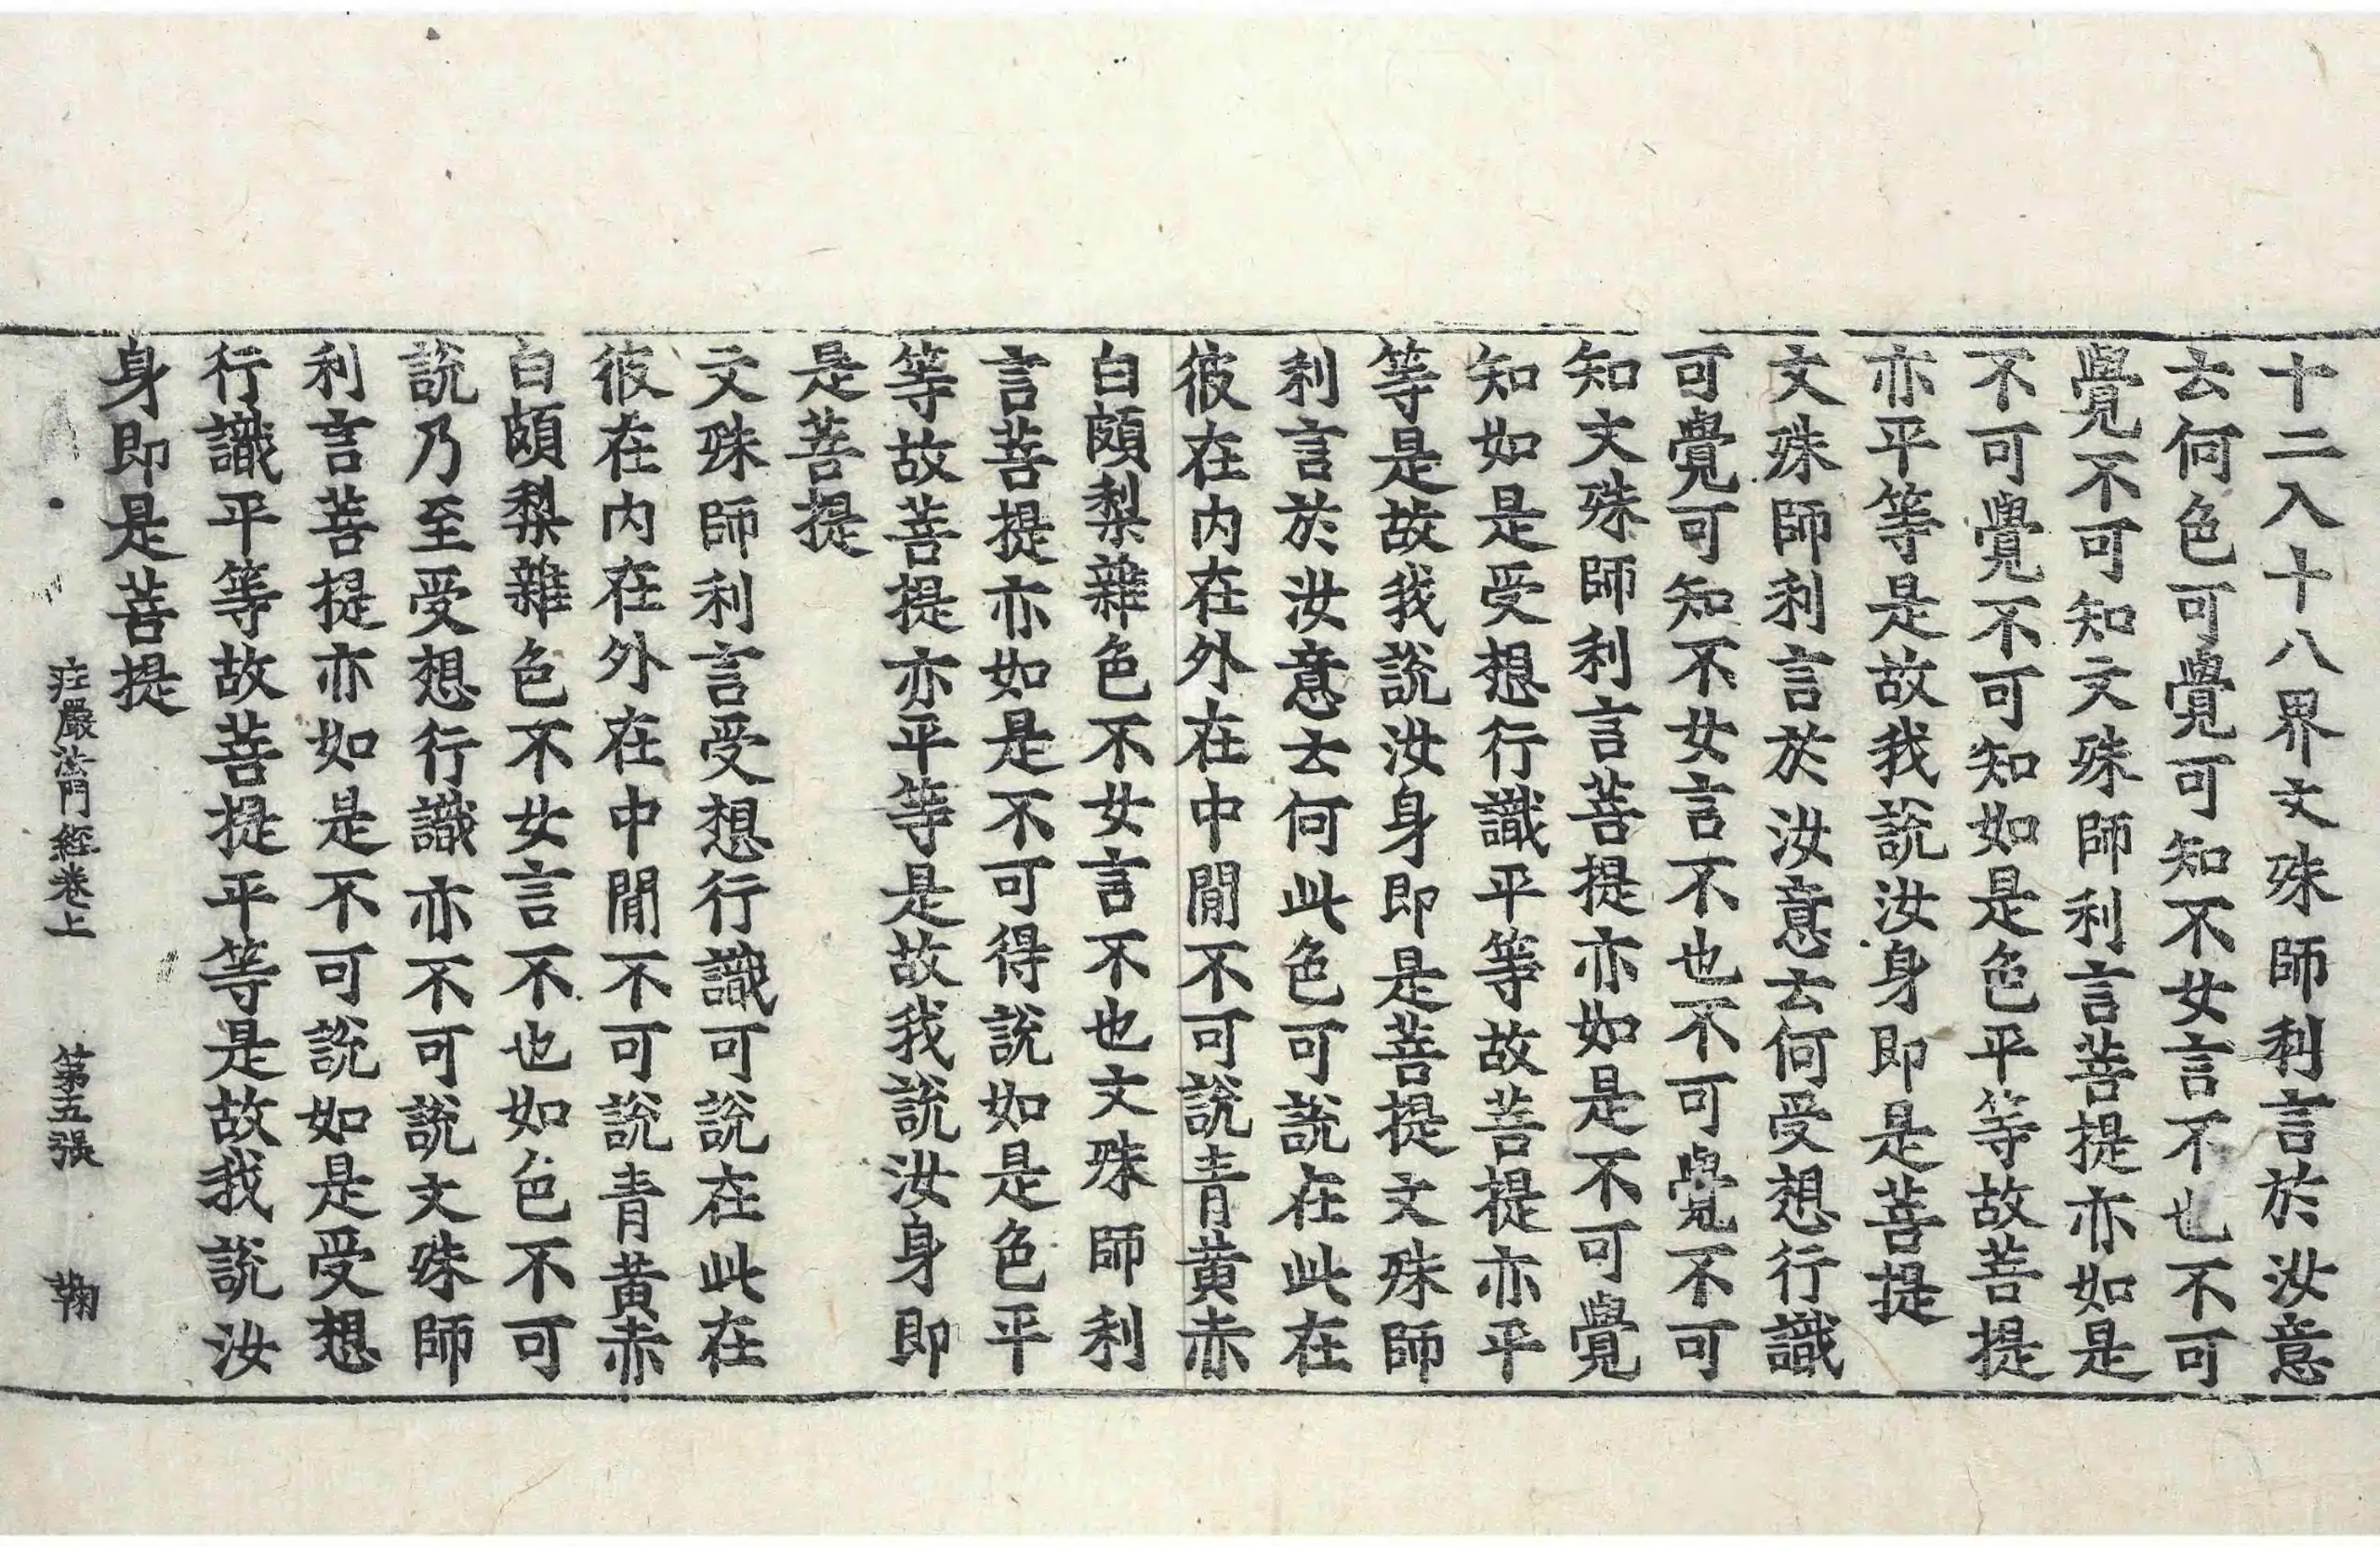 十二入十八界文殊師利言於汝意
去何色可覺可知不女言不也不可
覺不可知文殊師利言菩提亦如是
不可覺不可知如是色平等故菩提
亦平等是故我說汝身即是菩提
文殊師利言於汝意去何受想行識
可覺可知不女言不也不可覺不可
知文殊師利言菩提亦如是不可覺
知如是受想行識平等故菩提亦平
等是故我說汝身即是菩提文殊師
利言於汝意去何此色可說在此在
彼在内在外在中閒不可說青黄赤
白頗梨雜色不女言不也文殊師利
言菩提亦如是不可得說如是色平
等故菩提亦平等是故我說汝身即
是菩提
文殊師利言受想行識可說在此在
彼在内在外在中閒不可說青黄赤
白頗梨雜色不女言不也如色不可
說乃至受想行識亦不可說文殊師
利言菩提亦如是不可說如是受想
行識平等故菩提平等是故我說汝
身即是菩提
庄嚴法門經卷上 第五張 鞠